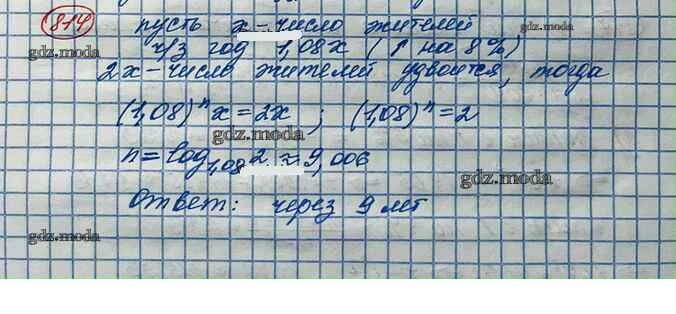 814 пусть x - число жителей
gdz.moda
ч/з год 1,08x (↑ на 8%)
gdz.moda
2x - число жителей удвоится, тогда
(1,08)ⁿx = 2x ; (1,08)ⁿ = 2
gdz.moda
n = log₁,₀₈2 ≈ 9,006
gdz.moda
Ответ: через 9 лет
gdz.moda